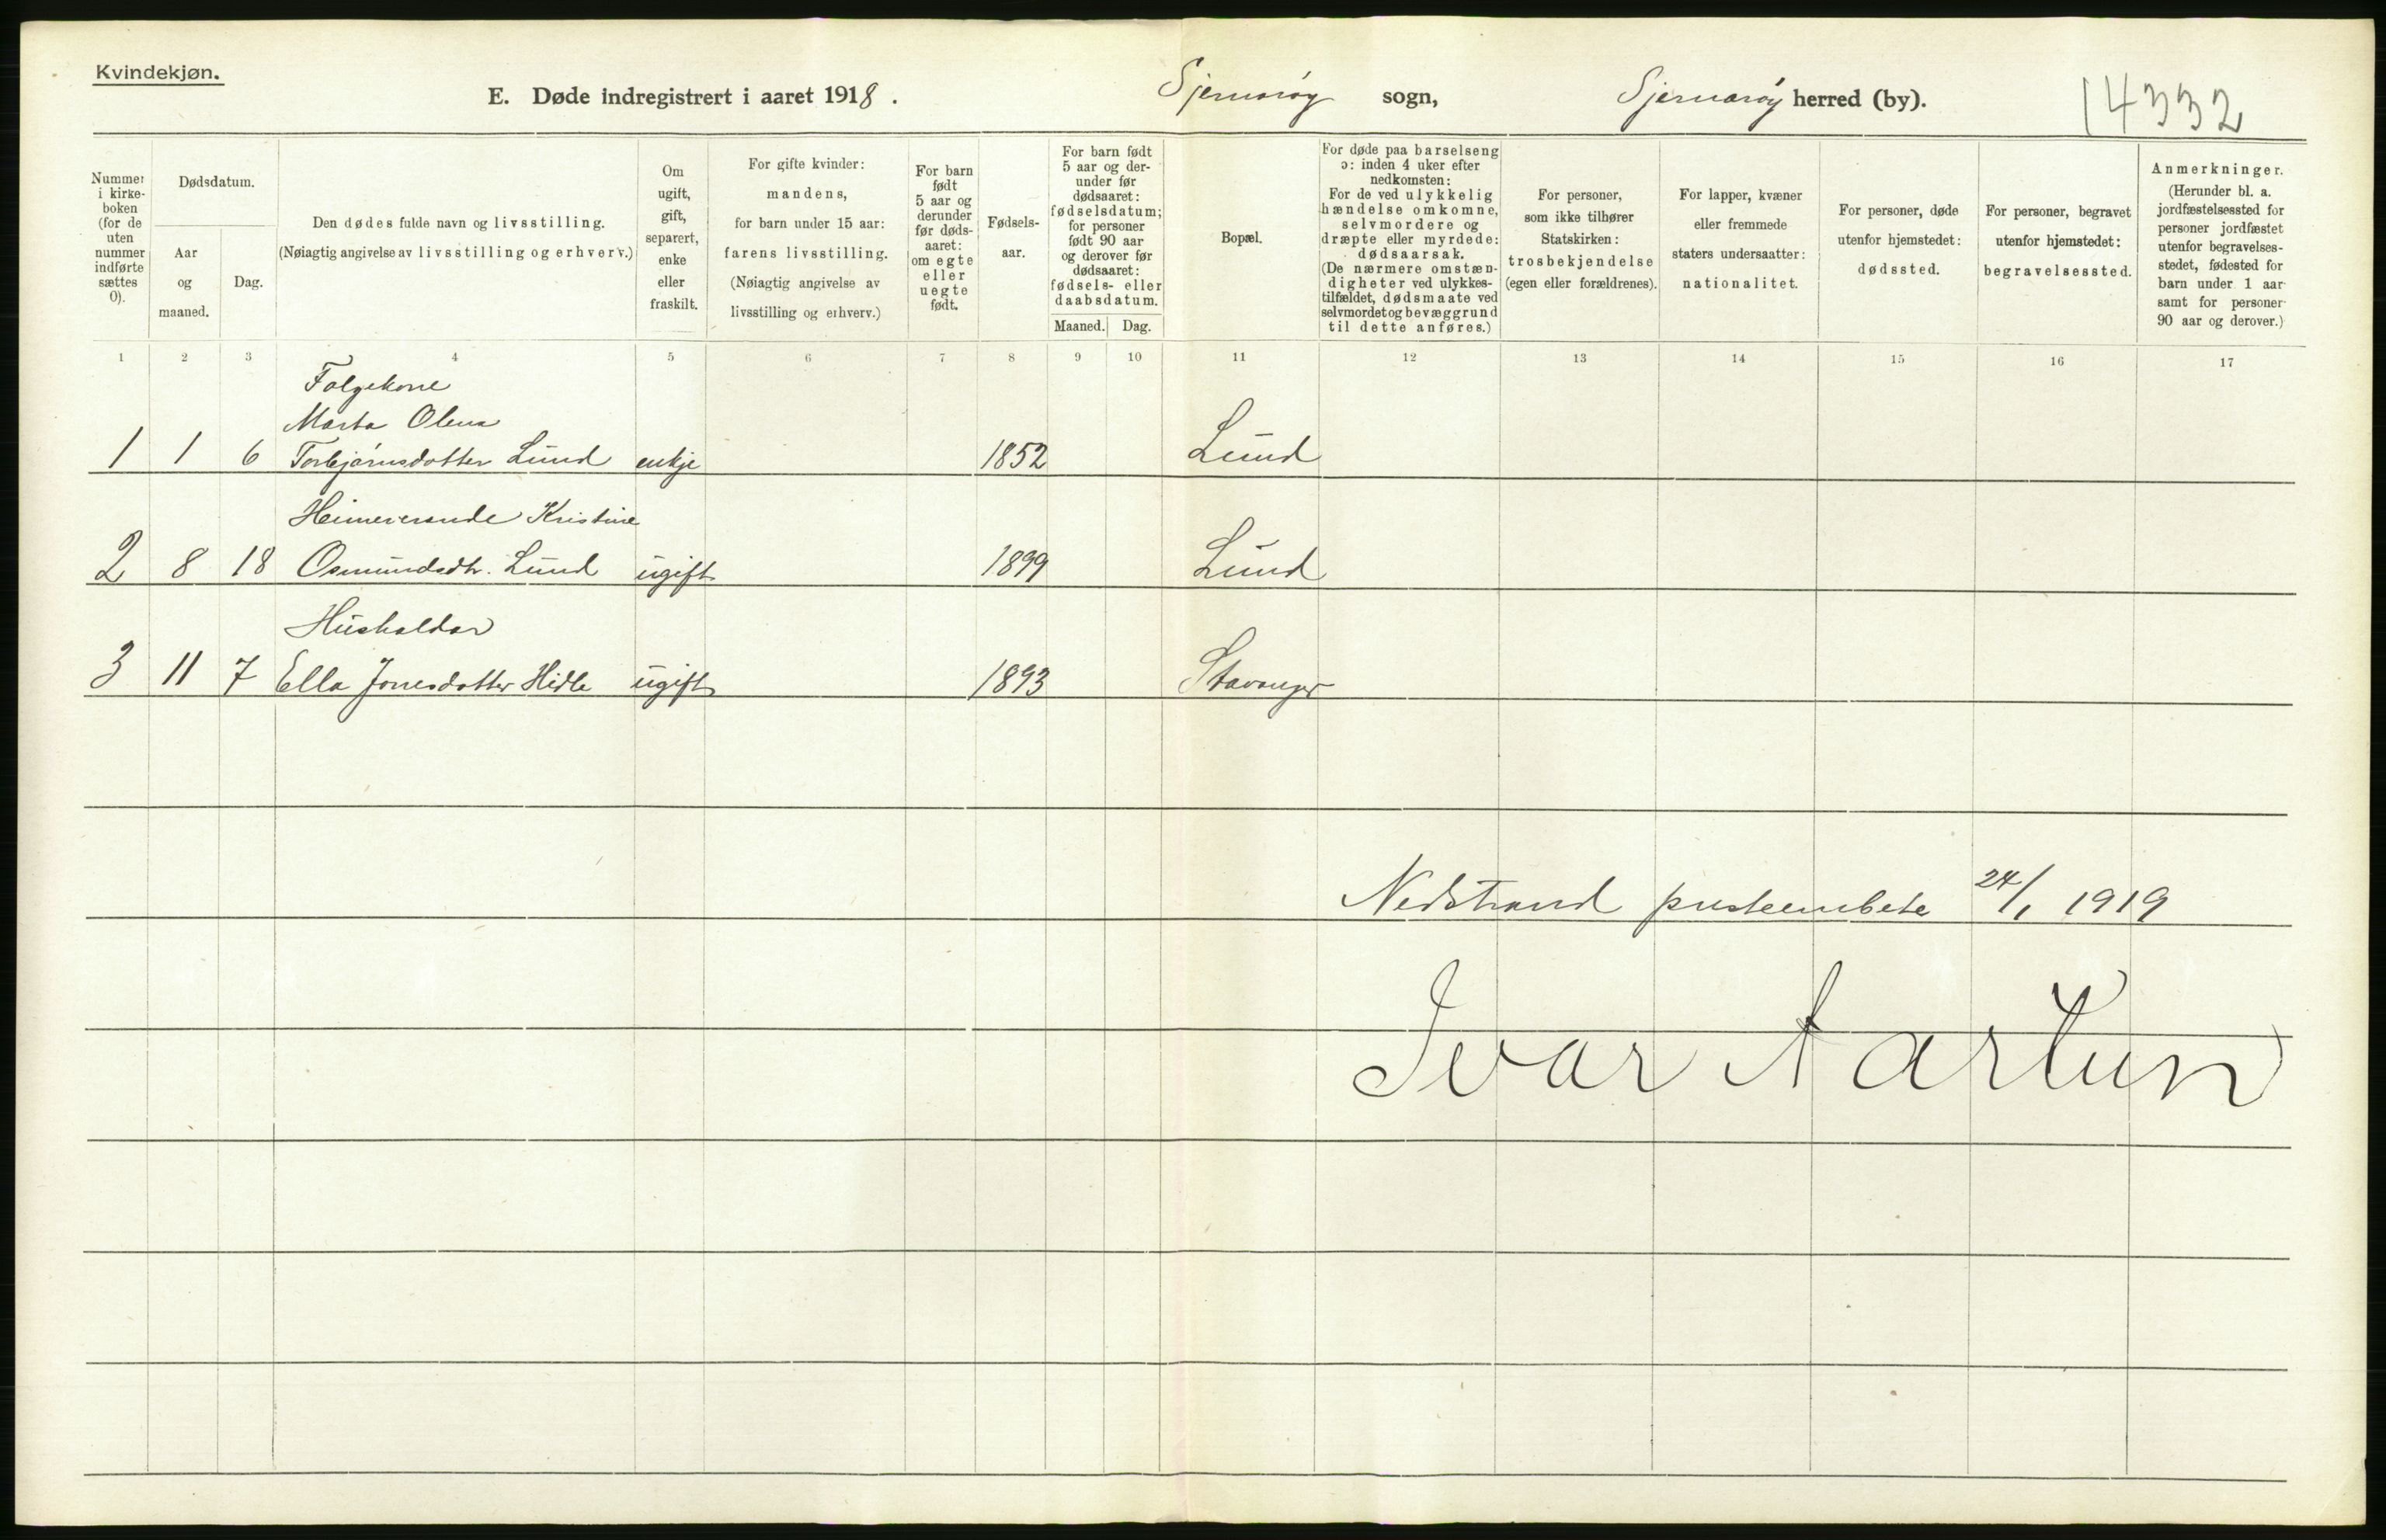 Kvindekjøn.
E. Døde indregistrert i aaret 1918. Sjernarøy sogn, Sjernarøy herred (by). 14332
Nummer i kirke-boken (for de uten nummer indførte sættes 0).
Dødsdatum.
Aar og maaned.
Dag.
Den dødes fulde navn og livsstilling.
(Nøiagtig angivelse av livsstilling og erhverv.)
Om ugift, gift, separert, enke eller fraskilt.
For gifte kvinder: mandens, for barn under 15 aar: farens livsstilling.
(Nøiagtig angivelse av livsstilling og erhverv.)
For barn født 5 aar og derunder før døds-aaret: om egte eller uegte født.
Fødsels-aar.
For barn født 5 aar og der-under før dødsaaret: fødselsdatum; for personer født 90 aar og derover før dødsaaret: fødsels- eller daabsdatum.
Maaned. Dag.
Bopæl.
For døde paa barselseng ɔ: inden 4 uker efter nedkomsten:
For de ved ulykkelig hændelse omkomne, selvmordere og dræpte eller myrdede: dødsaarsak.
(De nærmere omstæn-digheter ved ulykkes-tilfældet, dødsmaate ved selvmordet og bevæggrund til dette anføres.)
For personer, som ikke tilhører Statskirken: trosbekjendelse (egen eller forældrenes).
For lapper, kvæner eller fremmede staters undersaatter: nationalitet.
For personer, døde utenfor hjemstedet: dødssted.
For personer, begravet utenfor hjemstedet: begravelsessted.
Anmerkninger.
(Herunder bl. a. jordfæstelsessted for personer jordfæstet utenfor begravelses-stedet, fødested for barn under 1 aar samt for personer 90 aar og derover.)
1 2 3 4 5 6 7 8 9 10 11 12 13 14 15 16 17
Folgekone
Marta Olena
1 1 6 Torbjørnsdotter Lund enkje 1852 Lund
Heimeverande Kristine
2 8 18 Osmundsdtr. Lund ugift 1899 Lund
Hushaldar
3 11 7 Ella Jonesdotter Hidle ugift 1893 Stavanger
Nedstrand presteembete 24/1 1919
Ivar Aartun